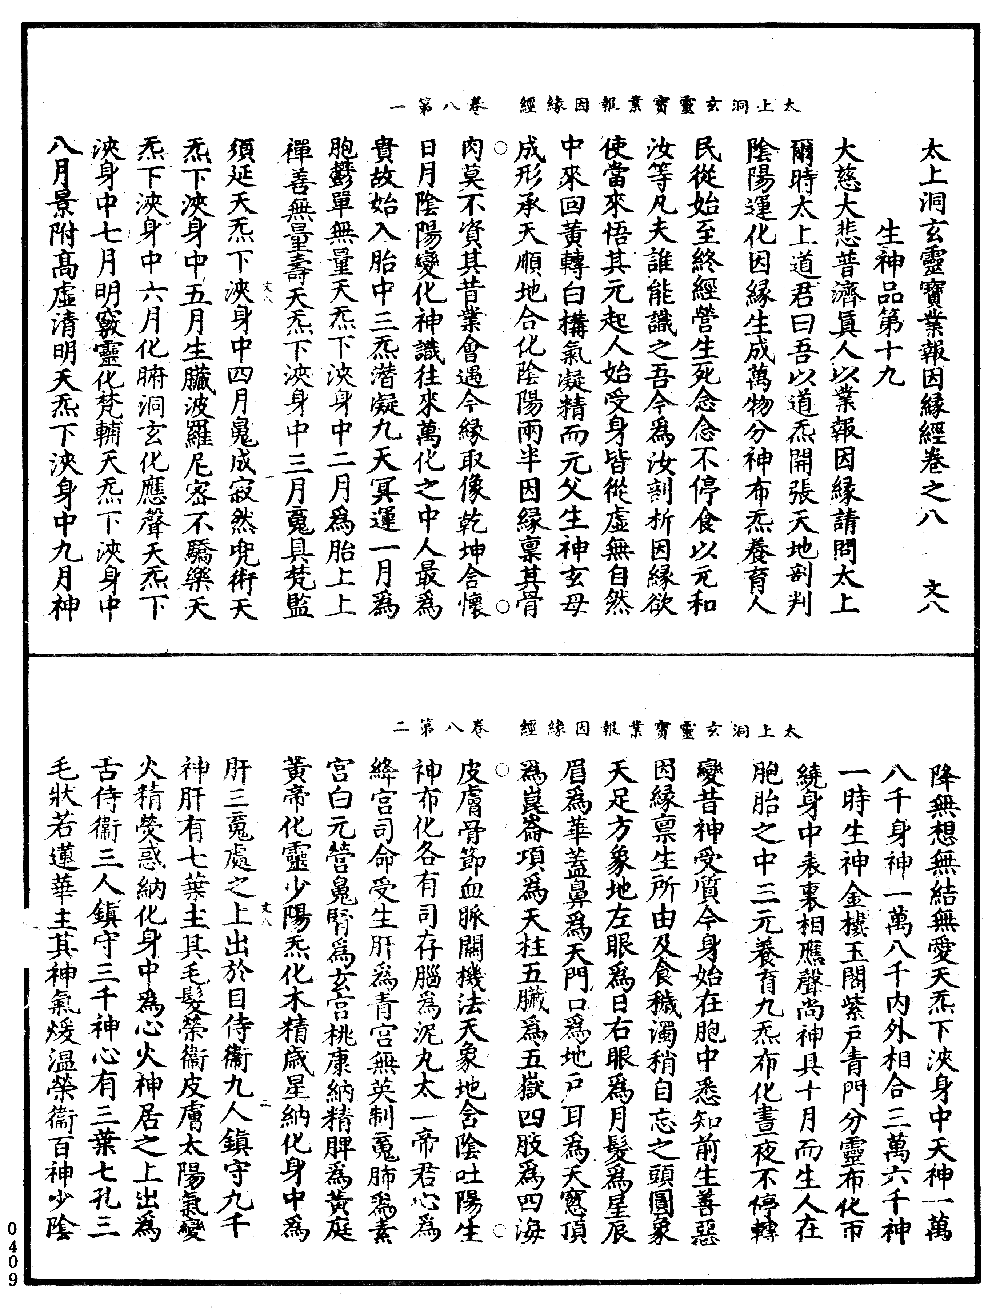 太上洞玄靈寶業報因緣經 卷八第一
太上洞玄靈寶業報因緣經卷之八 文八
生神品第十九
大慈大悲普濟眞人以業報因緣請問太上
爾時太上道君曰吾以道炁開張天地剖判
陰陽運化因緣生成萬物分神布炁養育人
民從始至終經營生死念念不停食以元和
汝等凡夫誰能識之吾今爲汝剖析因緣欲
使當來悟其元起人始受身皆從虛無自然
中來回黃轉白構氣凝精而元父生神玄母
成形承天順地合化陰陽兩半因緣稟其骨
肉莫不資其昔業會遇今緣取像乾坤含懷
日月陰陽變化神識往來萬化之中人最爲
貴故始入胎中三炁潛凝九天冥運一月爲
胞鬱單無量天炁下浹身中二月爲胎上上
禪善無量壽天炁下浹身中三月魂具梵監
須延天炁下浹身中四月魄成寂然兜術天
炁下浹身中五月生臟波羅尼密不驕樂天
炁下浹身中六月化腑洞玄化應聲天炁下
浹身中七月明竅靈化梵輔天炁下浹身中
八月景附高虛清明天炁下浹身中九月神
文八
太上洞玄靈寶業報因緣經 卷八第二
降無想無結無愛天炁下浹身中天神一萬
八千身神一萬八千內外相合三萬六千神
一時生神金樓玉閣紫戶青門分靈布化帀
繞身中表裏相應聲尚神具十月而生人在
胞胎之中三元養育九炁布化晝夜不停轉
變昔神受質今身始在胞中悉知前生善惡
因緣稟生所由及食穢濁稍自忘之頭圓象
天足方象地左眼爲日右眼爲月髮爲星辰
眉爲華蓋鼻爲天門口爲地戶耳爲天窻頂
爲崑崙項爲天柱五臟爲五嶽四肢爲四海
皮膚骨節血脈關機法天象地含陰吐陽生
神布化各有司存腦爲泥丸太一帝君心爲
絳宮司命受生肝爲青宮無英制魂肺爲素
宮白元營魄腎爲玄宮桃康納精脾爲黃庭
黃帝化靈少陽炁化木精歲星納化身中爲
肝三魂處之上出於目侍衞九人鎮守九千
神肝有七葉主其毛髮榮衞皮膚太陽氣變
火精熒惑納化身中爲心火神居之上出爲
舌侍衞三人鎮守三千神心有三葉七孔三
毛狀若蓮華主其神氣煖溫榮衞百神少陰
文八 二
0409